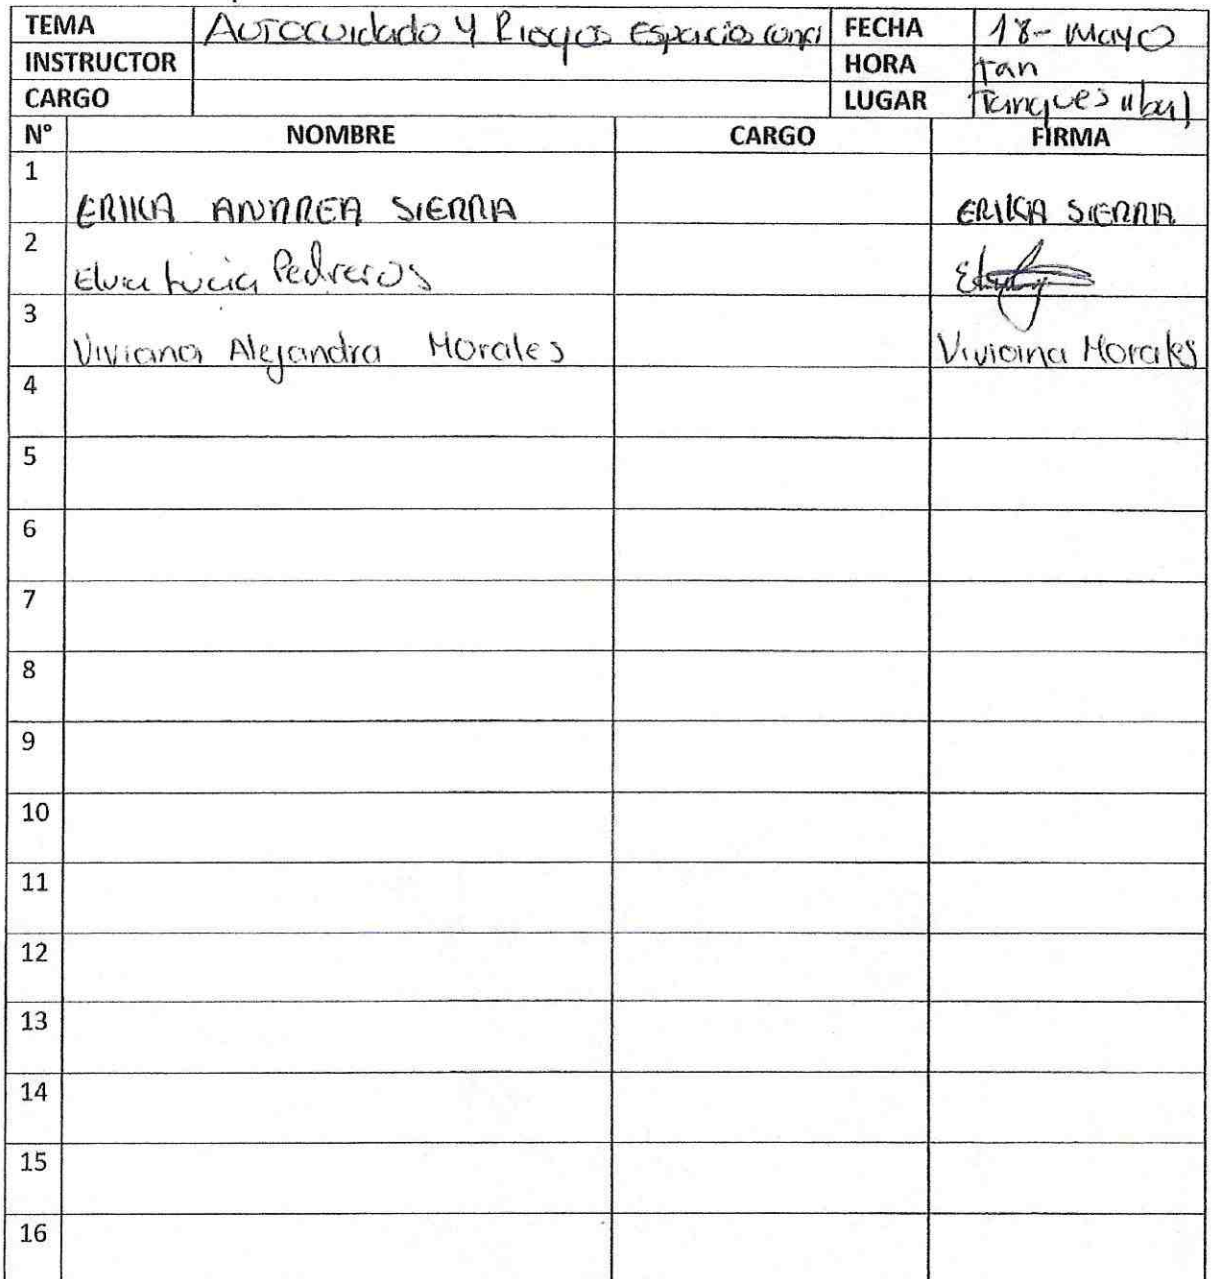 TEMA Autocuidado Y Riesgos Espacios confi FECHA 18-Mayo
INSTRUCTOR HORA
CARGO LUGAR Tanques
N° NOMBRE CARGO FIRMA
1 ERIKA ANDREA SIERRA ERIKA SIERRA
2 Elvia Lucia Pedreros
3 Viviana Alejandra Morales Viviana Morales
4
5
6
7
8
9
10
11
12
13
14
15
16